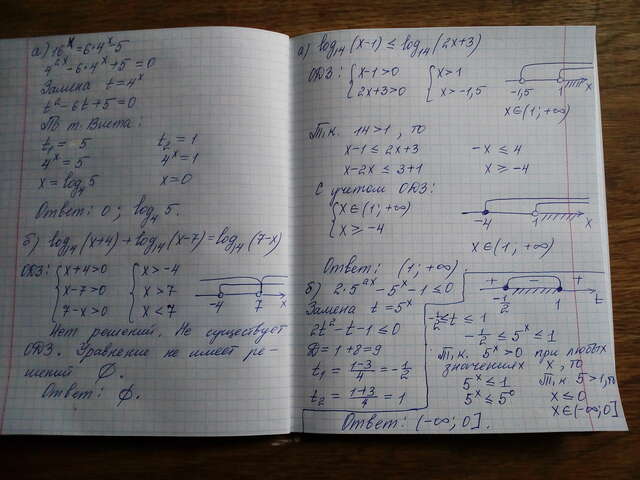 а) 16ˣ = 6·4ˣ-5
4²ˣ - 6·4ˣ + 5 = 0
Замена t = 4ˣ
t² - 6t + 5 = 0
По т. Виета:
t₁ = 5 t₂ = 1
4ˣ = 5 4ˣ = 1
x = log₄5 x = 0
Ответ: 0; log₄5.
б) log₁₄(x+4) + log₁₄(x-7) = log₁₄(7-x)
ОДЗ: { x+4>0 { x > -4
x-7>0 x > 7
7-x>0 x < 7
-4 7 x
Нет решений. Не существует
ОДЗ. Уравнение не имеет ре-
шений ∅.
Ответ: ∅.
а) log₁₄(x-1) ≤ log₁₄(2x+3)
ОДЗ: { x-1>0 { x>1
2x+3>0 x > -1,5
-1,5 1 x
x∈(1; +∞)
Т.к. 14>1, то
x-1 ≤ 2x+3 -x ≤ 4
x-2x ≤ 3+1 x ≥ -4
С учетом ОДЗ:
{ x∈(1; +∞)
x ≥ -4
-4 1 x
x∈(1, +∞)
Ответ: (1; +∞).
б) 2·5²ˣ - 5ˣ - 1 ≤ 0
Замена t = 5ˣ
2t² - t - 1 ≤ 0
D = 1+8 = 9
t₁ = (1-3)/4 = -1/2
t₂ = (1+3)/4 = 1
+ - +
-1/2 1 t
-1/2 ≤ t ≤ 1
-1/2 ≤ 5ˣ ≤ 1
Т.к. 5ˣ > 0 при любых
значениях x, то
5ˣ ≤ 1 Т.к 5>1, то
5ˣ ≤ 5⁰ x ≤ 0
x∈(-∞; 0]
Ответ: (-∞; 0].